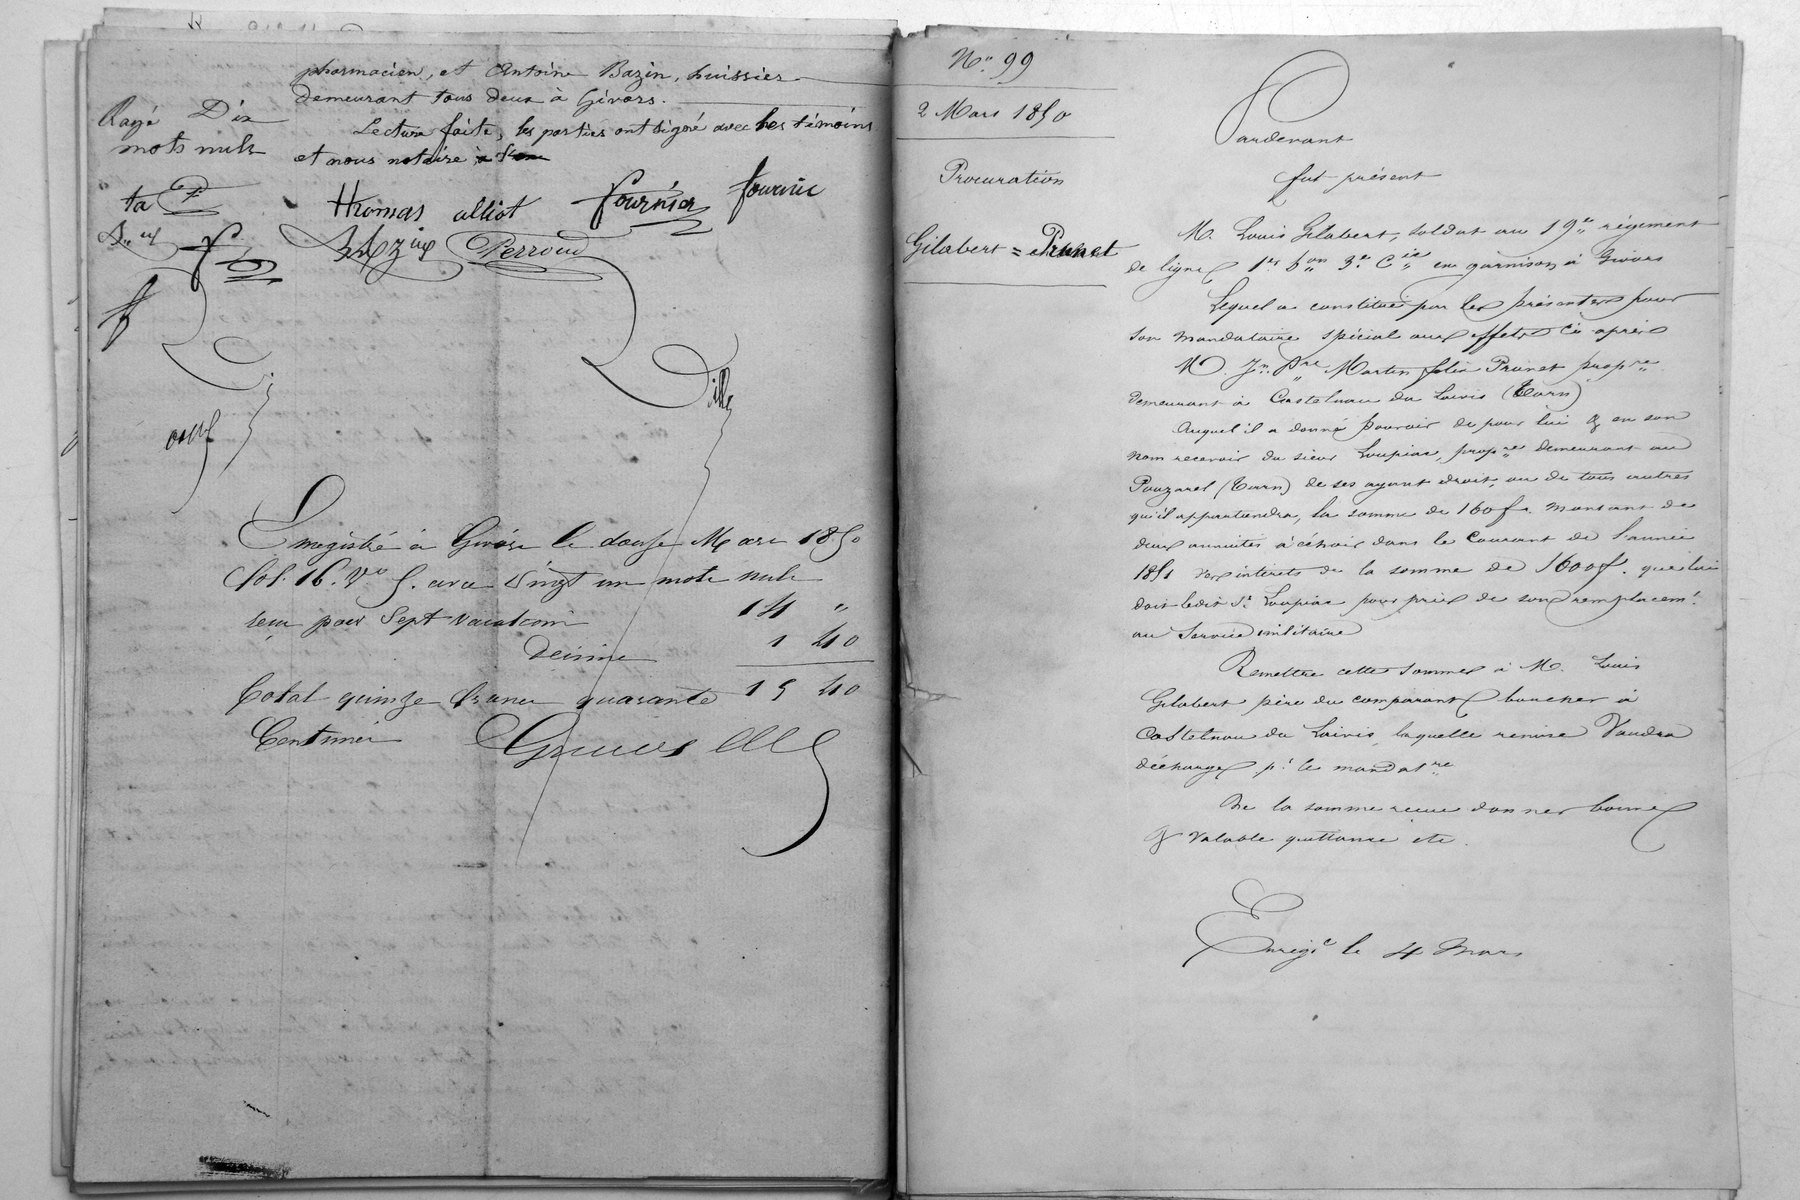 pharmacien, et Antoine Bazin, huissier
demeurant tous deux à Givors.
Lecture faite, les parties ont signé avec les témoins
et nous notaire
Rayé Dix
mots nuls
Thomas alliot fournier fournie
ta P
Bazin Perroud
Enregistré à Givors le douze Mars 1850
fol. 16. Vo 5. avec Vingt un mots nuls
reçu pour Sept vacations 14 "
Décime 1 40
Total quinze francs quarante 15 40
Centimes
No 99
2 Mars 1850
Procuration
Gilabert = Prunet
Pardevant
fut présent
M. Louis Gilabert, soldat au 19e régiment
de ligne 1er bon 3e Cie en garnison à Givors
Lequel a constitué par les présentes pour
son mandataire spécial aux effets ci après
M. Jn Pre Martin félix Prunet propre
demeurant à Castelnau du Loivis (Tarn)
Auquel il a donné pouvoir de pour lui & en son
nom recevoir du sieur Loupiac, propre demeurant au
Pouzarel (Tarn) de ses ayant droit, ou de tous autres
qu'il appartiendra, la somme de 160f. montant de
deux annuités à échoir dans le Courant de l'année
1851 des intérêts de la somme de 1600f. que lui
doit ledit Sr Loupiac pour prix de son remplacemt
au Service militaire
Remettre cette somme à M. Louis
Gilabert père du comparant boucher à
Castelnau du Loivis, laquelle remise Vaudra
décharge pr le mandatre
De la somme reçue donner bonne
& valable quittance etc.
Enregé le 4 Mars